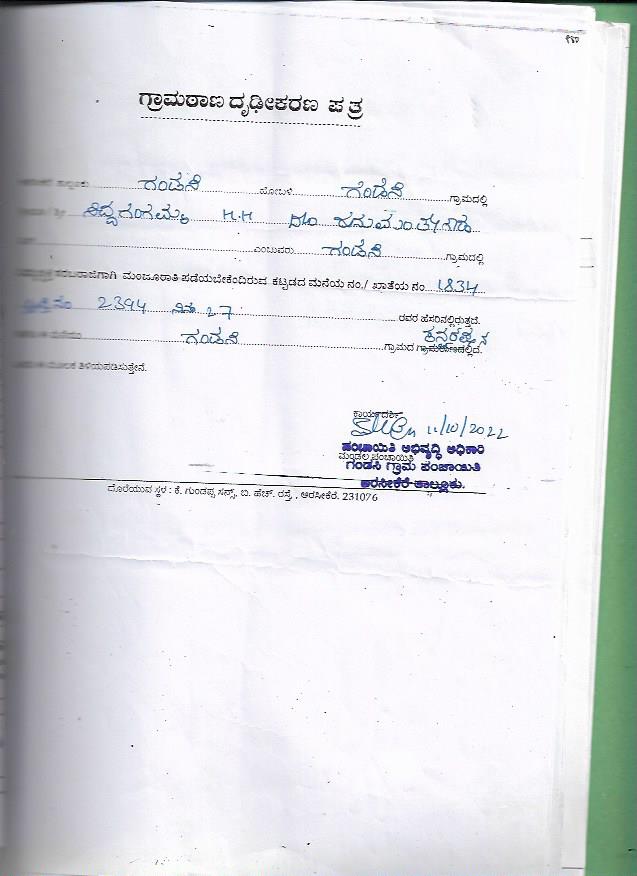 ಗ್ರಾಮಠಾಣ ದೃಢೀಕರಣ ಪತ್ರ
ತಾಲ್ಲೂಕು ಗಂಡಸಿ ಹೋಬಳಿ ಗಂಡಸಿ ಗ್ರಾಮದಲ್ಲಿ
ಸಿದ್ದಗಂಗಮ್ಮ H.H D/o ಹನುಮಂತೇಗೌಡ
ಎಂಬುವರು ಗಂಡಸಿ ಗ್ರಾಮದಲ್ಲಿ
ಸರಬರಾಜಿಗಾಗಿ ಮಂಜೂರಾತಿ ಪಡೆಯಬೇಕೆಂದಿರುವ ಕಟ್ಟಡದ ಮನೆಯ ನಂ./ ಖಾತೆಯ ನಂ 1834
2394 27 ರವರ ಹೆಸರಿನಲ್ಲಿರುತ್ತದೆ.
ಗಂಡಸಿ ಗ್ರಾಮದ ಗ್ರಾಮಠಾಣದಲ್ಲಿದೆ.
ಮೂಲಕ ತಿಳಿಯಪಡಿಸುತ್ತೇನೆ.
ಕಾರ್ಯದರ್ಶಿ
11/10/2022
ಪಂಚಾಯಿತಿ ಅಭಿವೃದ್ಧಿ ಅಧಿಕಾರಿ
ಮಂಡಲ ಪಂಚಾಯಿತಿ
ಗಂಡಸಿ ಗ್ರಾಮ ಪಂಚಾಯಿತಿ
ಅರಸೀಕೆರೆ ತಾಲ್ಲೂಕು.
ದೊರೆಯುವ ಸ್ಥಳ : ಕೆ. ಗುಂಡಪ್ಪ ಸನ್ಸ್, ಬಿ. ಹೆಚ್. ರಸ್ತೆ, ಅರಸೀಕೆರೆ. 231076